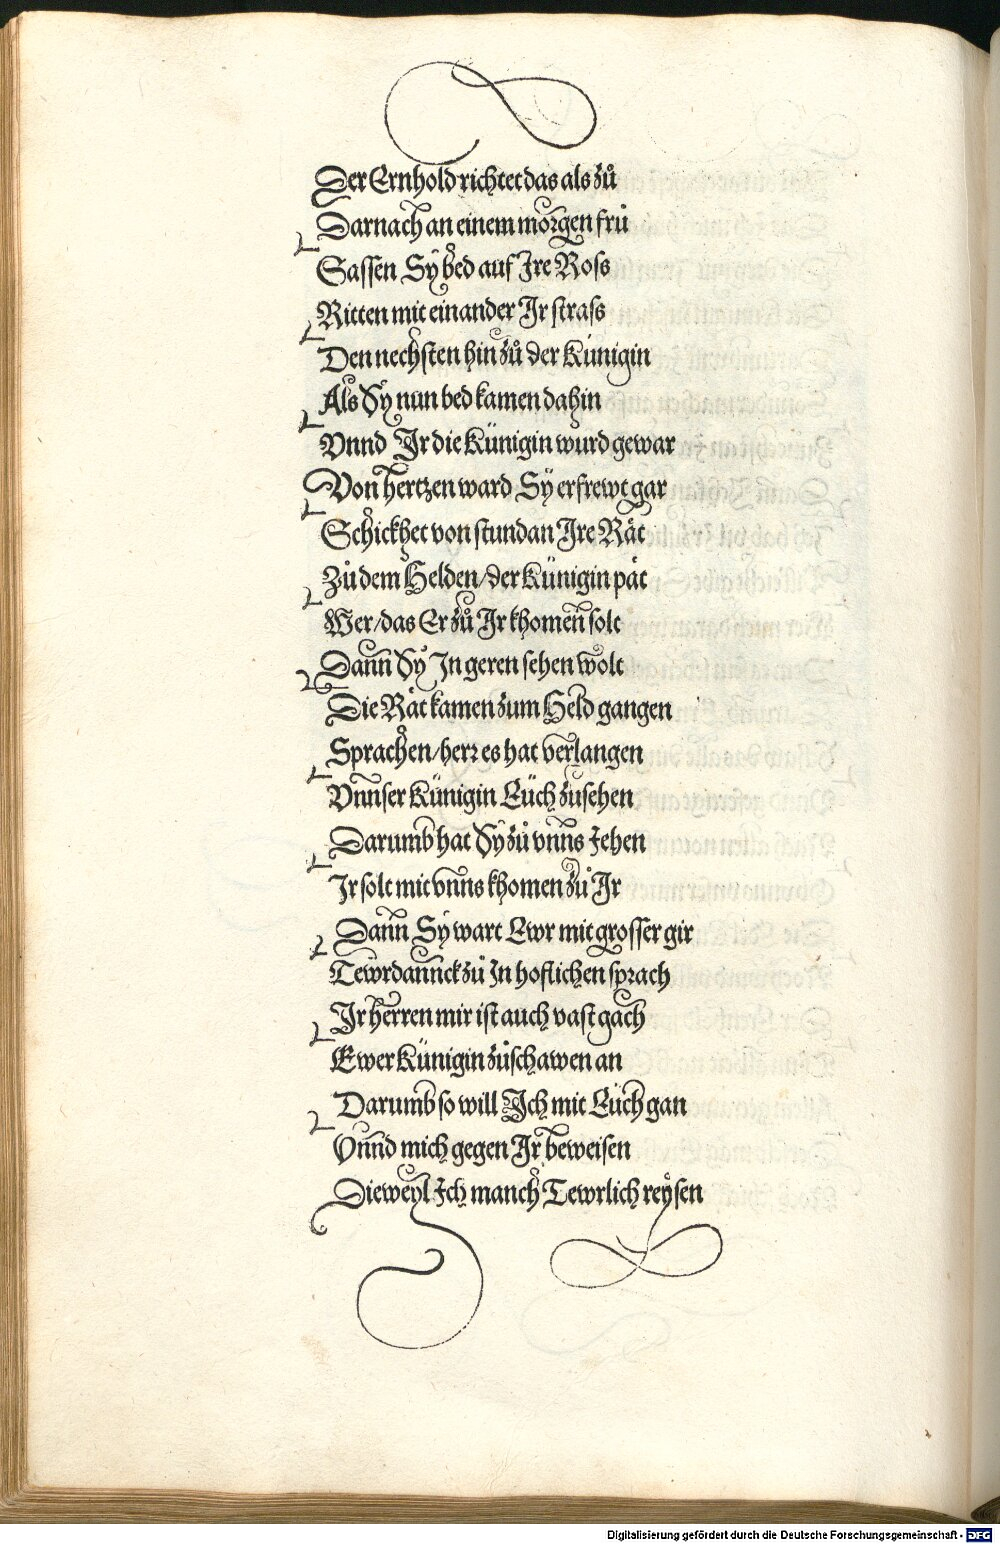 Der Ernhold richtet das als zů
Darnach an einem morgen frů
Sassen Sy bed auf Ire Ross
Ritten mit einander Ir strass
Den nechsten hin zů der Künigin
Als Sy nun bed kamen dahin
Vnnd Ir die Künigin wurd gewar
Von hertzen ward Sy erfrewt gar
Schickhet von stundan Ire Rät
Zů dem Helden/der Künigin pät
Wer/das Er zů Ir khomen solt
Dann Sy In geren sehen wolt
Die Rät kamen zum Held gangen
Sprachen/herr es hat verlangen
Vnnser Künigin Euch zusehen
Darumb hat Sy zů vnns Jehen
Ir solt mit vnns khomen zů Ir
Dann Sy wart Ewr mit grosser gir
Tewrdannck zů In hoflichen sprach
Ir herren mir ist auch vast gach
Ewer Künigin zůschawen an
Darumb so will Ich mit Euch gan
Vnnd mich gegen Ir beweisen
Dieweyl Ich manch Tewrlich reysen
Digitalisierung gefördert durch die Deutsche Forschungsgemeinschaft - DFG